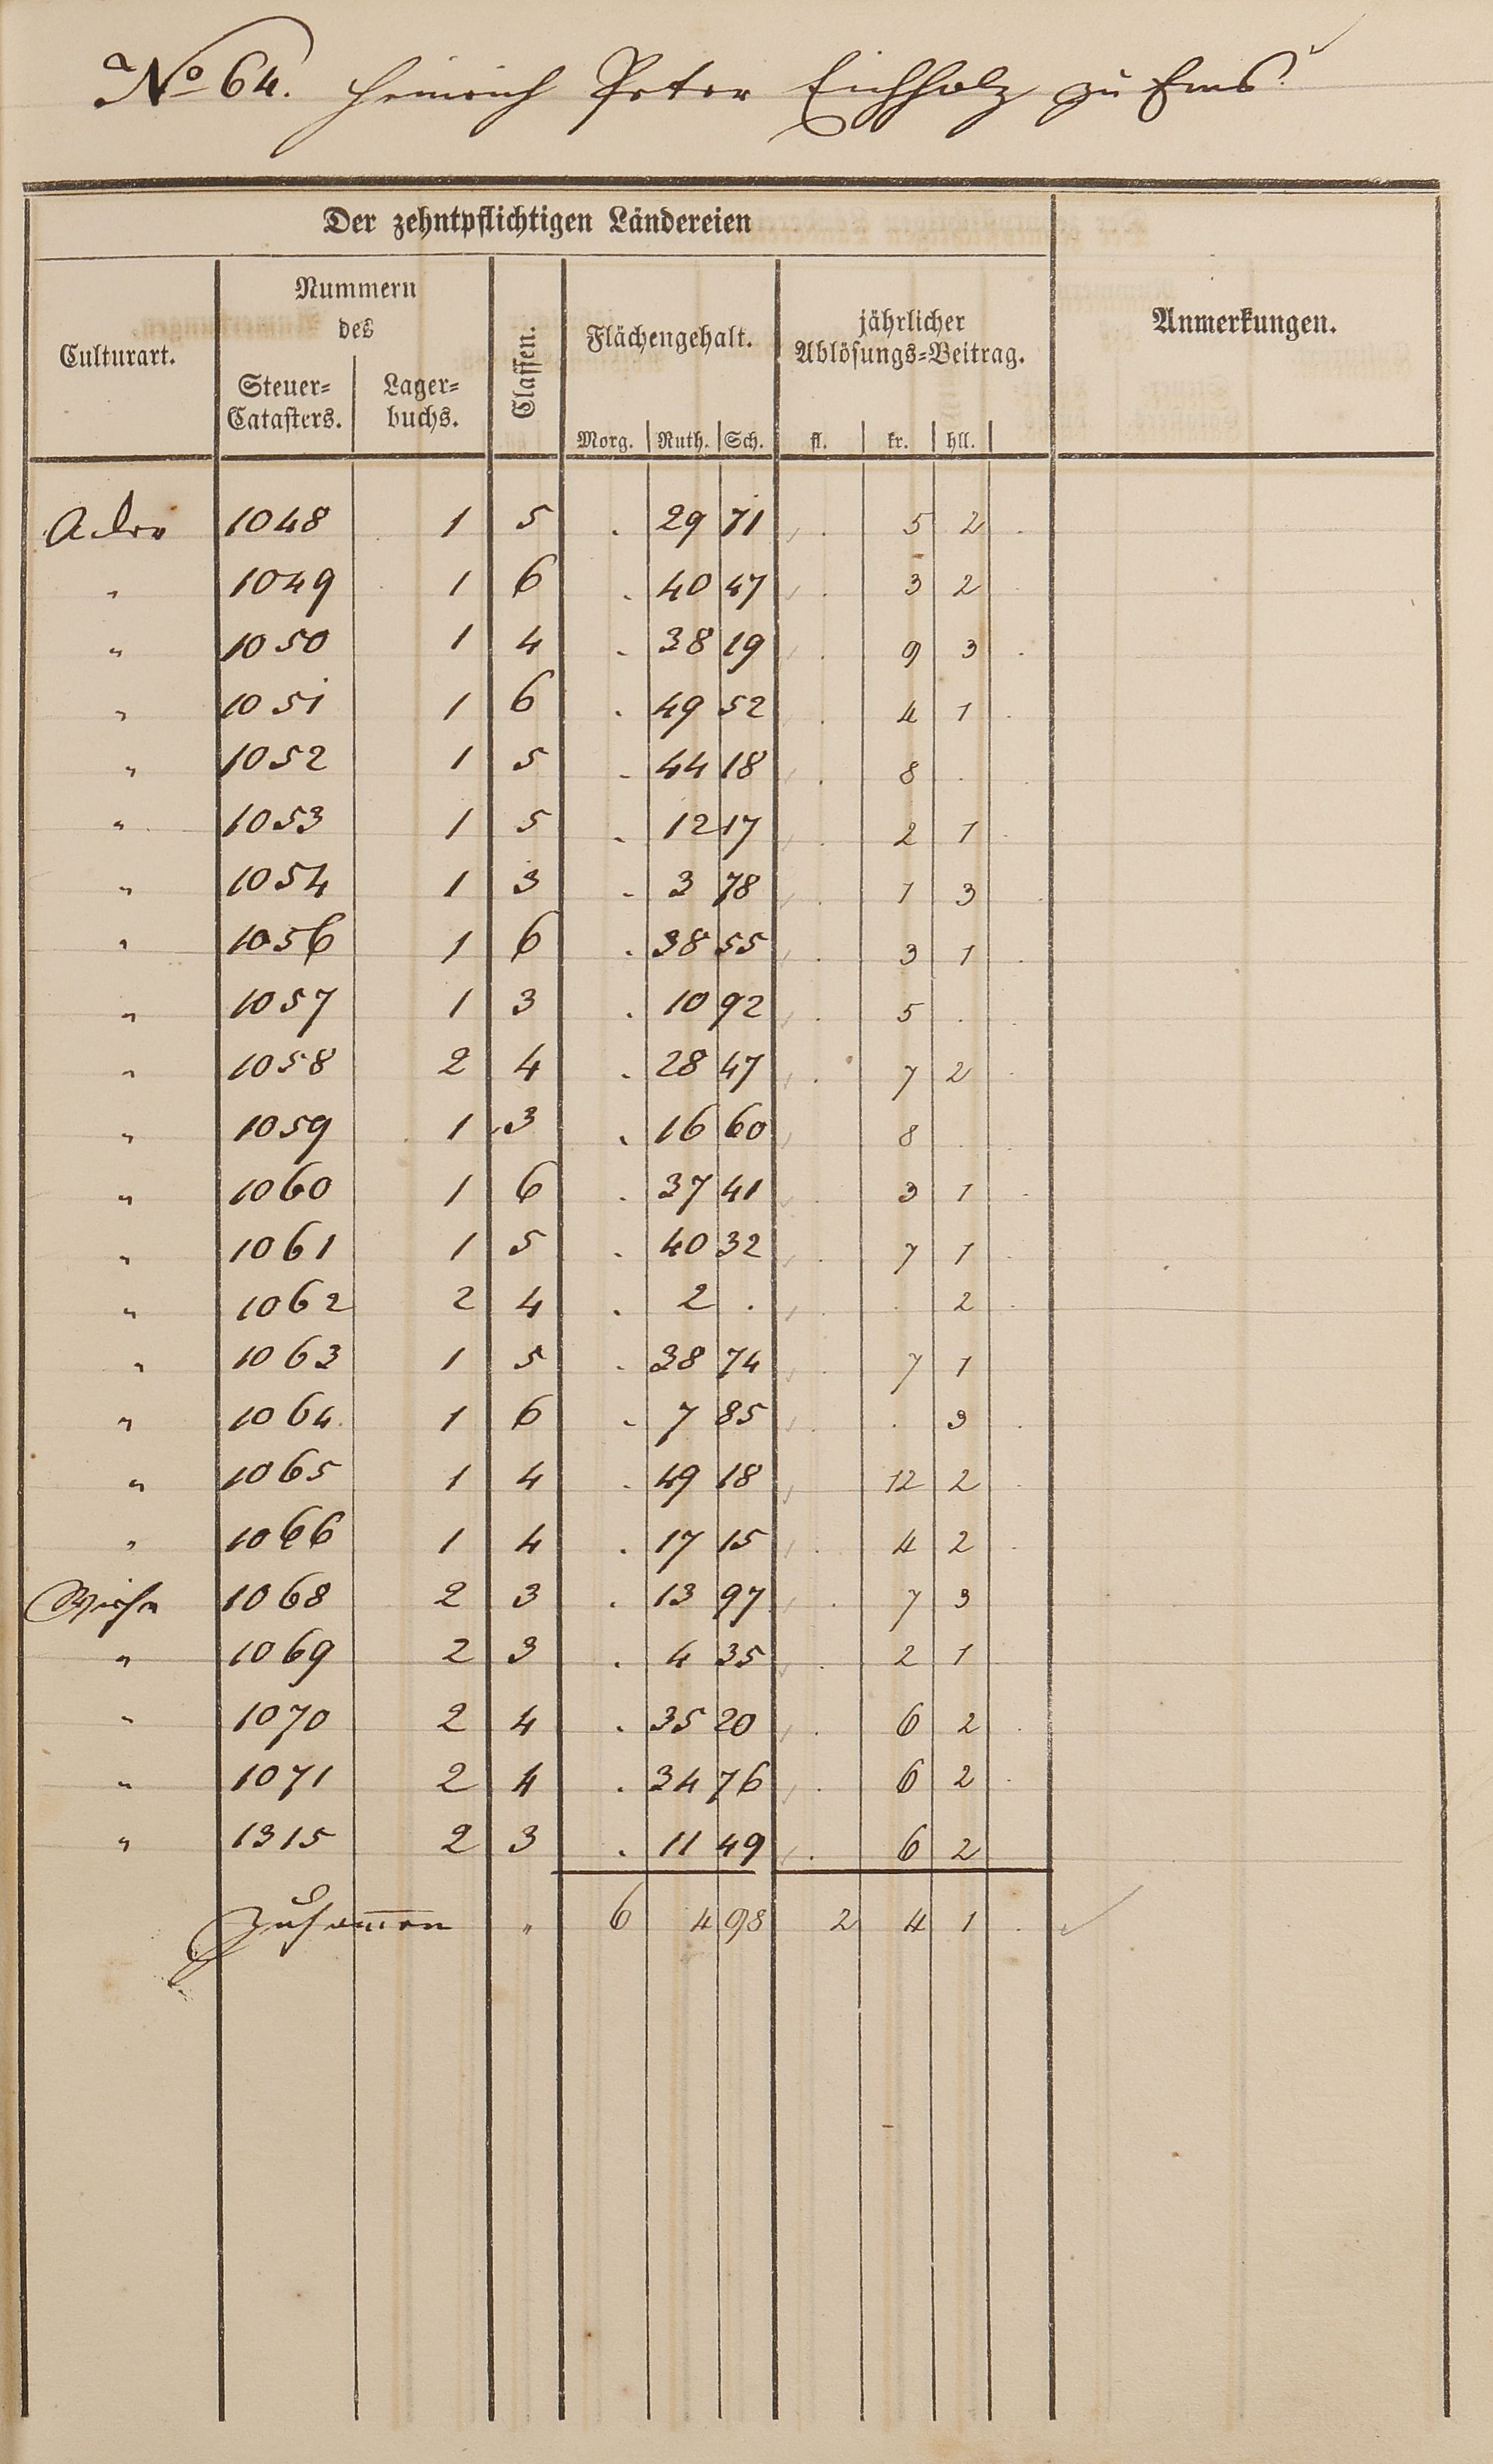 No 64. Heinrich Peter Eichholz zu Ems.
Der zehntpflichtigen Ländereien
Culturart.
Nummern
des
Steuer=
Catasters.
Lager=
buchs.
Classen.
Flächengehalt.
Morg. Ruth. Sch.
jährlicher
Ablösungs=Beitrag.
fl. kr. hll.
Anmerkungen.
Acker 1048 1 5 . 29 71 . 5 2
" 1049 1 6 . 40 47 . 3 2
" 1050 1 4 . 38 19 . 9 3
" 1051 1 6 . 49 52 . 4 1
" 1052 1 5 . 44 18 . 8 .
" 1053 1 5 . 12 17 . 2 1
" 1054 1 3 . 3 78 . 1 3
" 1056 1 6 . 38 55 . 3 1
" 1057 1 3 . 10 92 . 5 .
" 1058 2 4 . 28 47 . 7 2
" 1059 1 3 . 16 60 . 8 .
" 1060 1 6 . 37 41 . 3 1
" 1061 1 5 . 40 32 . 7 1
" 1062 2 4 . 2 . . . 2
" 1063 1 5 . 38 74 . 7 1
" 1064. 1 6 . 7 85 . . 3
" 1065 1 4 . 49 18 . 12 2
" 1066 1 4 . 17 15 . 4 2
Wiese 1068 2 3 . 13 97 . 7 3
" 1069 2 3 . 4 35 . 2 1
" 1070 2 4 . 35 20 . 6 2
" 1071 2 4 . 34 76 . 6 2
" 1315 2 3 . 11 49 . 6 2
Zusam̅en " 6 4 98 2 4 1